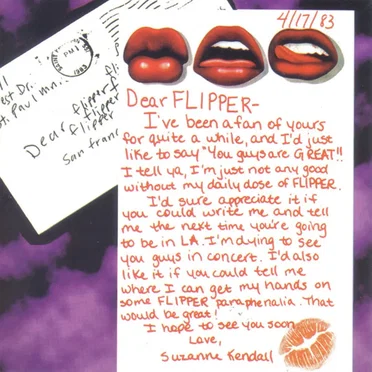 4/17/83
Dear FLIPPER-
I've been a fan of yours
for quite a while, and I'd just
like to say "You guys are GREAT!!
I tell ya, I'm just not any good
without my daily dose of FLIPPER.
I'd sure appreciate it if
you could write me and tell
me the next time you're going
to be in LA. I'm dying to see
you guys in concert. I'd also
like it if you could tell me
where I can get my hands on
some FLIPPER paraphenalia. That
would be great!
I hope to see you soon
Love,
Suzanne Kendall
est Dr.
t. Paul mn.
Dear flipper
flipper
flipper
San franc